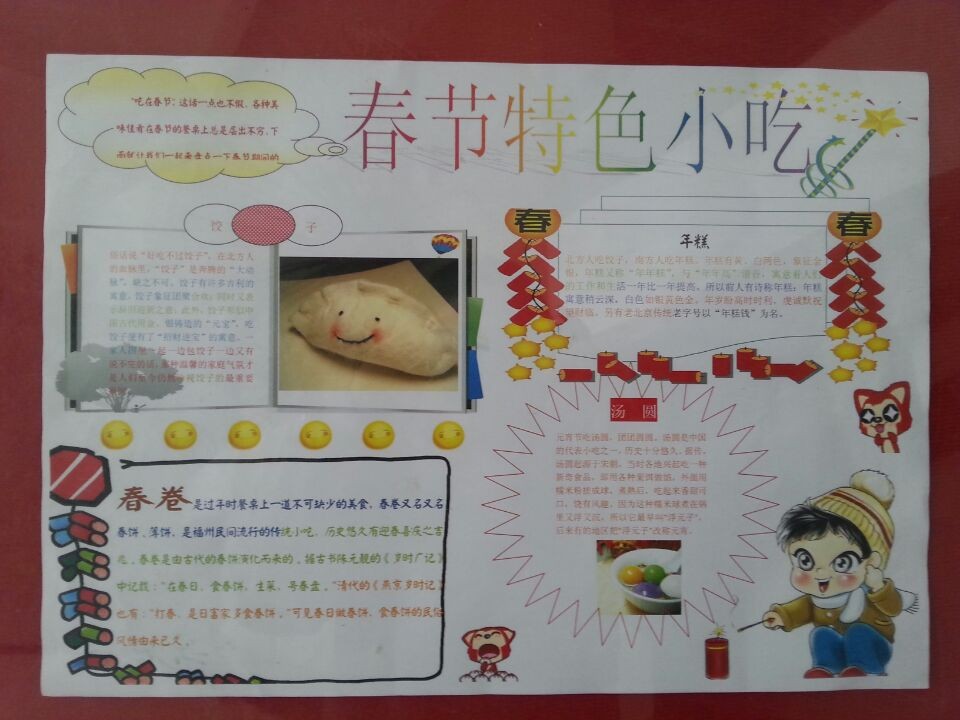 春节特色小吃
"吃在春节"这话一点也不假，各种美
味佳肴在春节的餐桌上总是层出不穷，下
面就让我们一起来盘点一下春节期间的
饺 子
俗话说"好吃不过饺子"，在北方人
的血脉里，"饺子"是奔腾的"大动
脉"，缺之不可。饺子有许多吉利的
寓意，饺子象征团聚合欢；同时又表
示辞旧迎新之意；此外，饺子形似中
国古代用金、银铸造的"元宝"，吃
饺子便有了"招财进宝"的寓意。一
家人围坐一起一边包饺子一边又有
说不完的话，那种温馨的家庭气氛才
是人们至今仍然重视饺子的最重要
春
春
年糕
北方人吃饺子，南方人吃年糕。年糕有黄、白两色，象征金
银，年糕又称"年年糕"，与"年年高"谐音，寓意着人们
的工作和生活一年比一年提高。所以前人有诗称年糕：年糕
寓意稍云深，白色如银黄色金。年岁盼高时时利，虔诚默祝
望财临。另有老北京传统老字号以"年糕钱"为名。
汤 圆
元宵节吃汤圆，团团圆圆。汤圆是中国
的代表小吃之一，历史十分悠久。据传，
汤圆起源于宋朝。当时各地兴起吃一种
新奇食品，即用各种果饵做馅，外面用
糯米粉搓成球，煮熟后，吃起来香甜可
口，饶有风趣。因为这种糯米球煮在锅
里又浮又沉，所以它最早叫"浮元子"，
后来有的地区把"浮元子"改称元宵。
春卷是过年时餐桌上一道不可缺少的美食，春卷又名又名
春饼、薄饼，是福州民间流行的传统小吃，历史悠久有迎春喜庆之吉
兆。春卷是由古代的春饼演化而来的，据古书陈元靓的《岁时广记》
中记载："在春日，食春饼，生菜，号春盘。"清代的《燕京岁时记》
也有："打春，是日富家多食春饼。"可见春日做春饼，食春饼的民俗
风情由来已久。